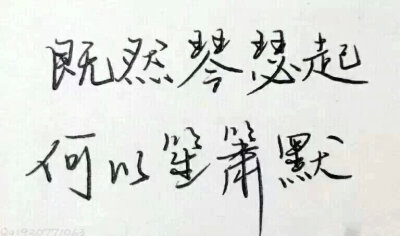 既然琴瑟起
何以笙箫默